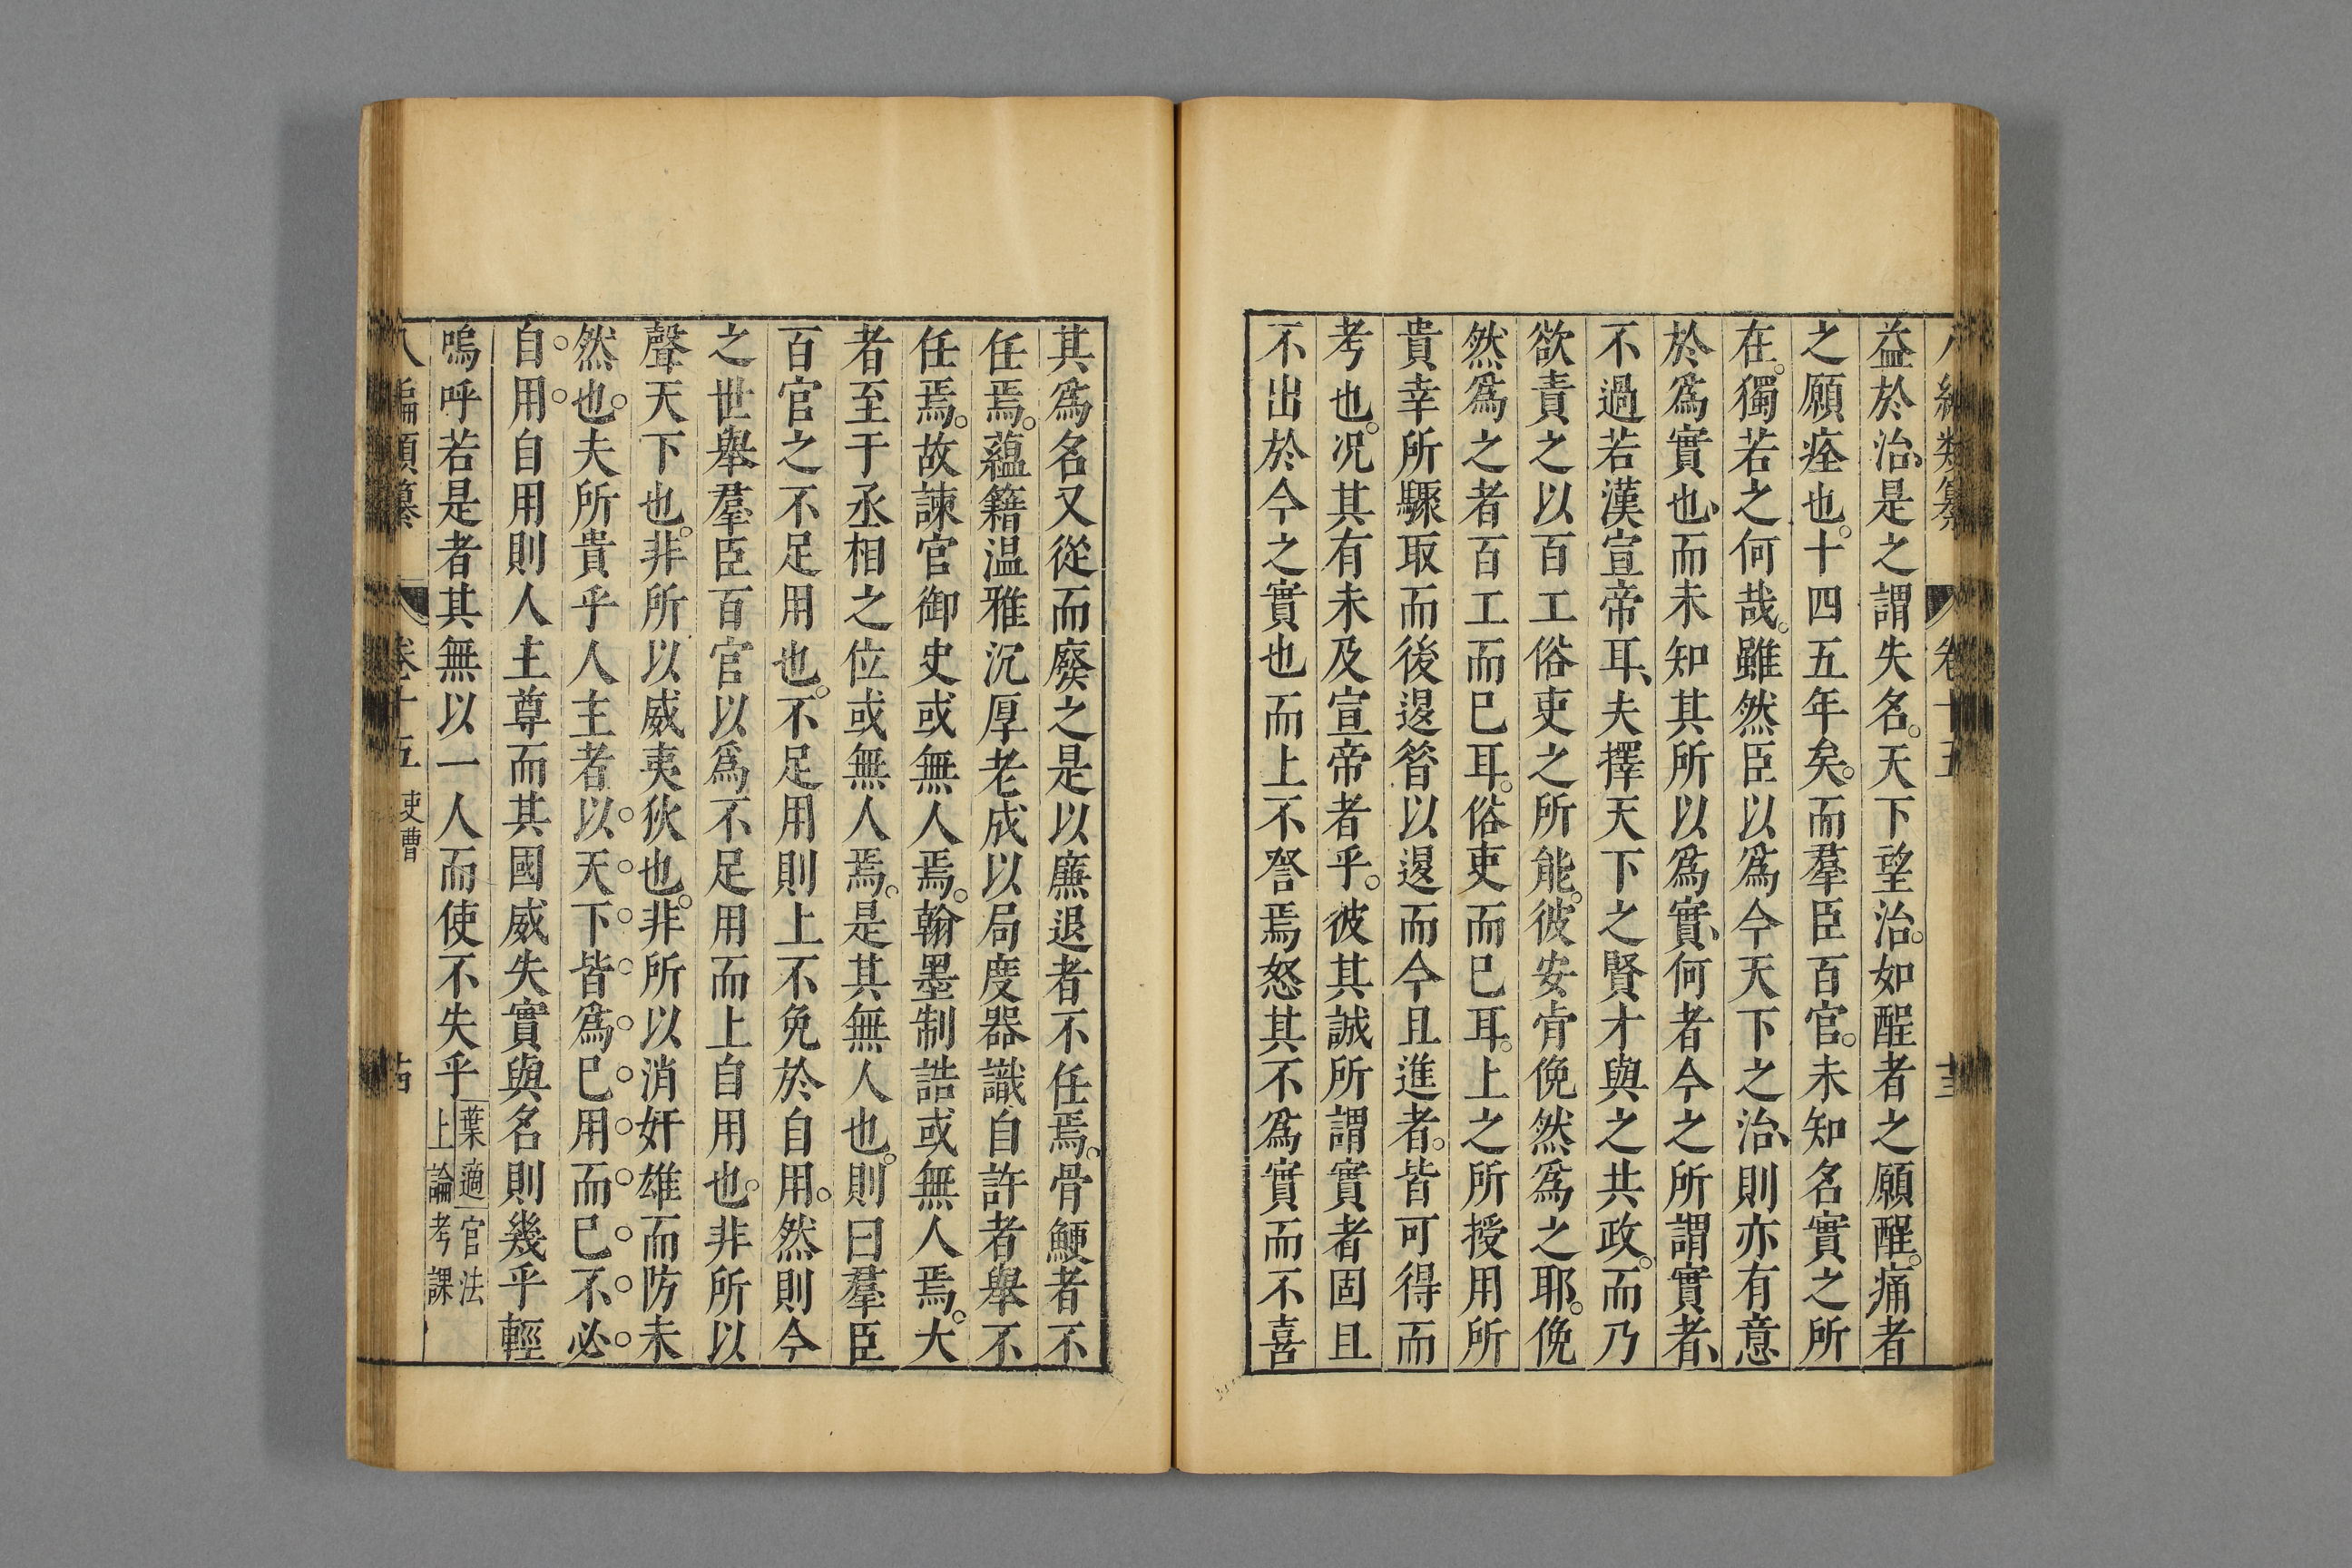 八編類纂 卷十五 十三
益於治、是之謂失名。天下望治。如酲者之願醒。痛者
之願痊也。十四五年矣。而羣臣百官。未知名實之所
在。獨若之何哉。雖然臣以爲今天下之治、則亦有意
於爲實也、而未知其所以爲實、何者今之所謂實者、
不過若漢宣帝耳、夫擇天下之賢才與之共政。而乃
欲責之以百工俗吏之所能。彼安肯俛然爲之耶。俛
然爲之者百工而巳耳。俗吏而巳耳。上之所授用所
貴幸所驟取而後退咎以退而今且進者。皆可得而
考也。况其有未及宣帝者乎。彼其誠所謂實者固且
不出於今之實也而上不咎焉怒其不爲實而不喜
其爲名又從而廢之是以廉退者不任焉。骨鯁者不
任焉。蘊籍温雅沉厚老成以局度器識自許者舉不
任焉。故諫官御史或無人焉。翰墨制誥或無人焉。大
者至于丞相之位或無人焉。是其無人也。則曰羣臣
百官之不足用也。不足用則上不免於自用。然則今
之世舉羣臣百官以爲不足用而上自用也。非所以
聲天下也。非所以威夷狄也。非所以消奸雄而防未
然也。夫所貴乎人主者以天下皆爲巳用而巳不必
自用自用則人主尊而其國威失實與名則幾乎輕
嗚呼若是者其無以一人而使不失乎 葉適官法上論考課
八編類纂 卷十五 吏曹 十四